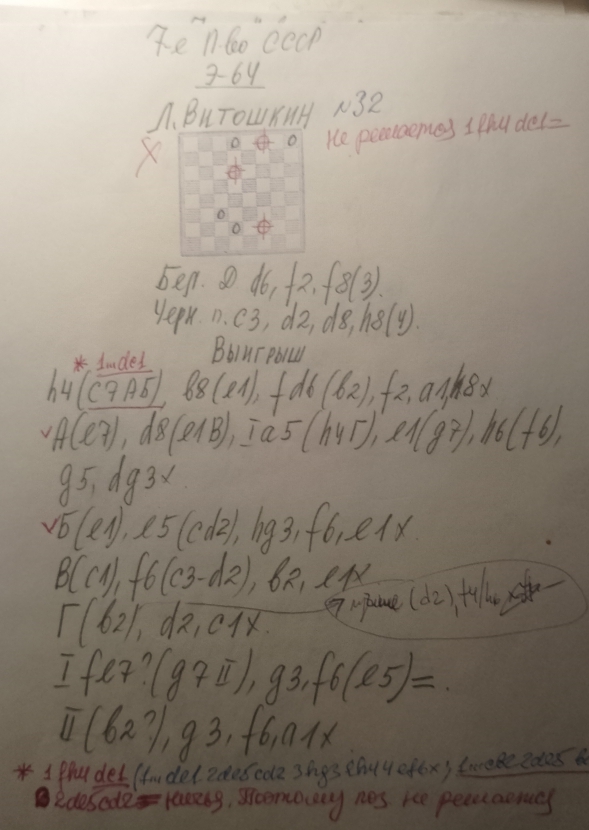 7-е П-во СССР
Э-64
Л. Витошкин №32
Не решается 1 fh4 dc1=
Бел. Д d6, f2, f8(3).
Черн. п. c3, d2, d8, h8(4).
Выигрыш
* 1...dc1
h4(c7АБ), b8(e1), fd6(b2), f2, a1, h8x
А(e7), d8(e1В), Ia5(h4Г), e1(g7), h6(f6),
g5, dg3x
Б(e1), e5(cd2), hg3, f6, e1x.
В(c1), f6(c3-d2), b2, e1x
(d2), f4/h6 x
Г(b2), d2, c1x.
I fe7?(g7II), g3, f6(e5)=.
II(b2?), g3, f6, a1x
* 1 fh4 dc1 (1...de1 2de5 cd2 3hg3
2de5 cd2= ничья. Поэтому поз не решается